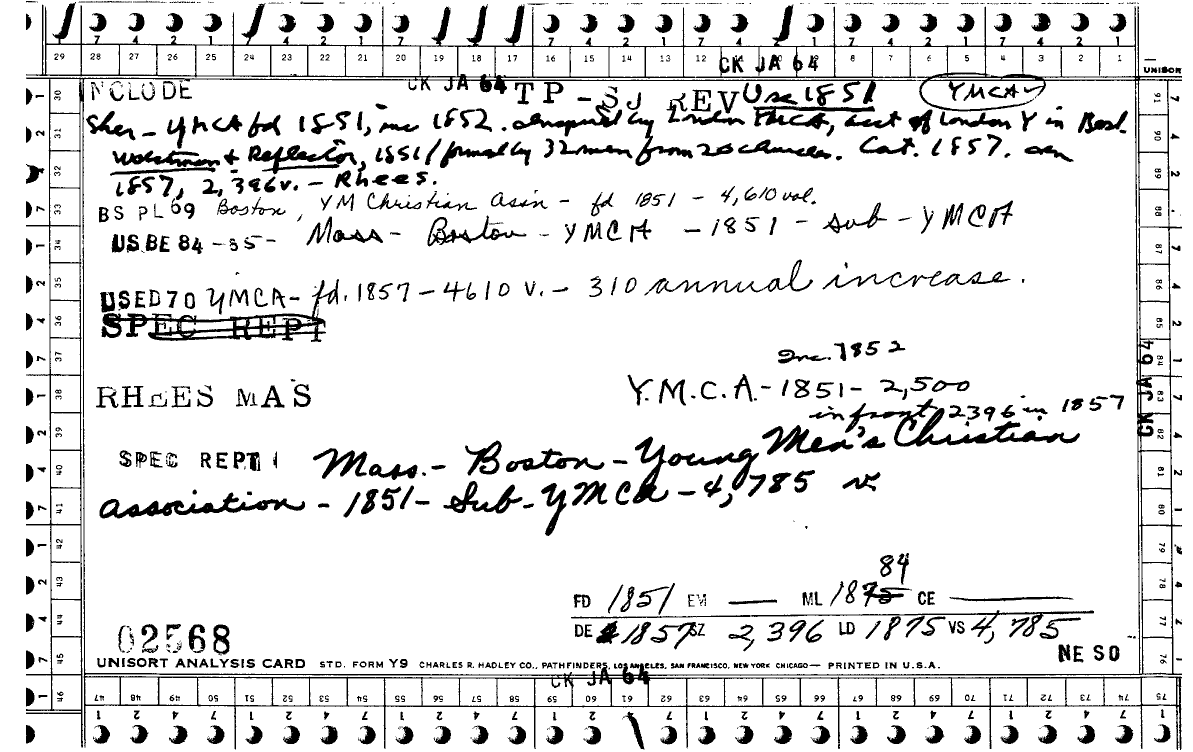 7 4 2 1 7 4 2 1 7 4 2 1 7 4 2 1 7 4 2 1 7 4 2 1 7 4 2 1
29 28 27 26 25 24 23 22 21 20 19 18 17 16 15 14 13 12 CK JA 64 8 7 6 5 4 3 2 1 UNISORT
INCLUDE CK JA 64 TP - SJ REV Use 1851 YMCA
Sher - YMCA fd 1851, inc 1852. Inspired by London YMCA, acct of London Y in Bost.
Watchman & Reflector, 1851/ formed by 32 men from 20 churches. Cat. 1857.
1857, 2,396v. - Rhees.
BS PL 69 Boston, YM Christian Assn - fd 1851 - 4,610 vol.
US BE 84-85- Mass - Boston - YMCA - 1851 - sub - YMCA
USED70 YMCA - fd. 1857 - 4610 v. - 310 annual increase.
SPEC REPT
Inc. 1852
RHEES MAS Y.M.C.A - 1851 - 2,500
in front 2396 in 1857
SPEC REPT Mass. - Boston - Young Men's Christian
Association - 1851 - Sub - YMCA - 4,785 v.
84
FD 1851 EM — ML 1875 CE —
DE 1857 SZ 2,396 LD 1875 VS 4,785
02568
NE SO
UNISORT ANALYSIS CARD STD. FORM Y9 CHARLES R. HADLEY CO., PATHFINDERS, LOS ANGELES, SAN FRANCISCO, NEW YORK CHICAGO — PRINTED IN U.S.A.
CK JA 64
CK JA 64
30 31 32 33 34 35 36 37 38 39 40 41 42 43 44 45 46
91 90 89 88 87 86 85 84 83 82 81 80 79 78 77 76 75
47 48 49 50 51 52 53 54 55 56 57 58 59 60 61 62 63 64 65 66 67 68 69 70 71 72 73 74